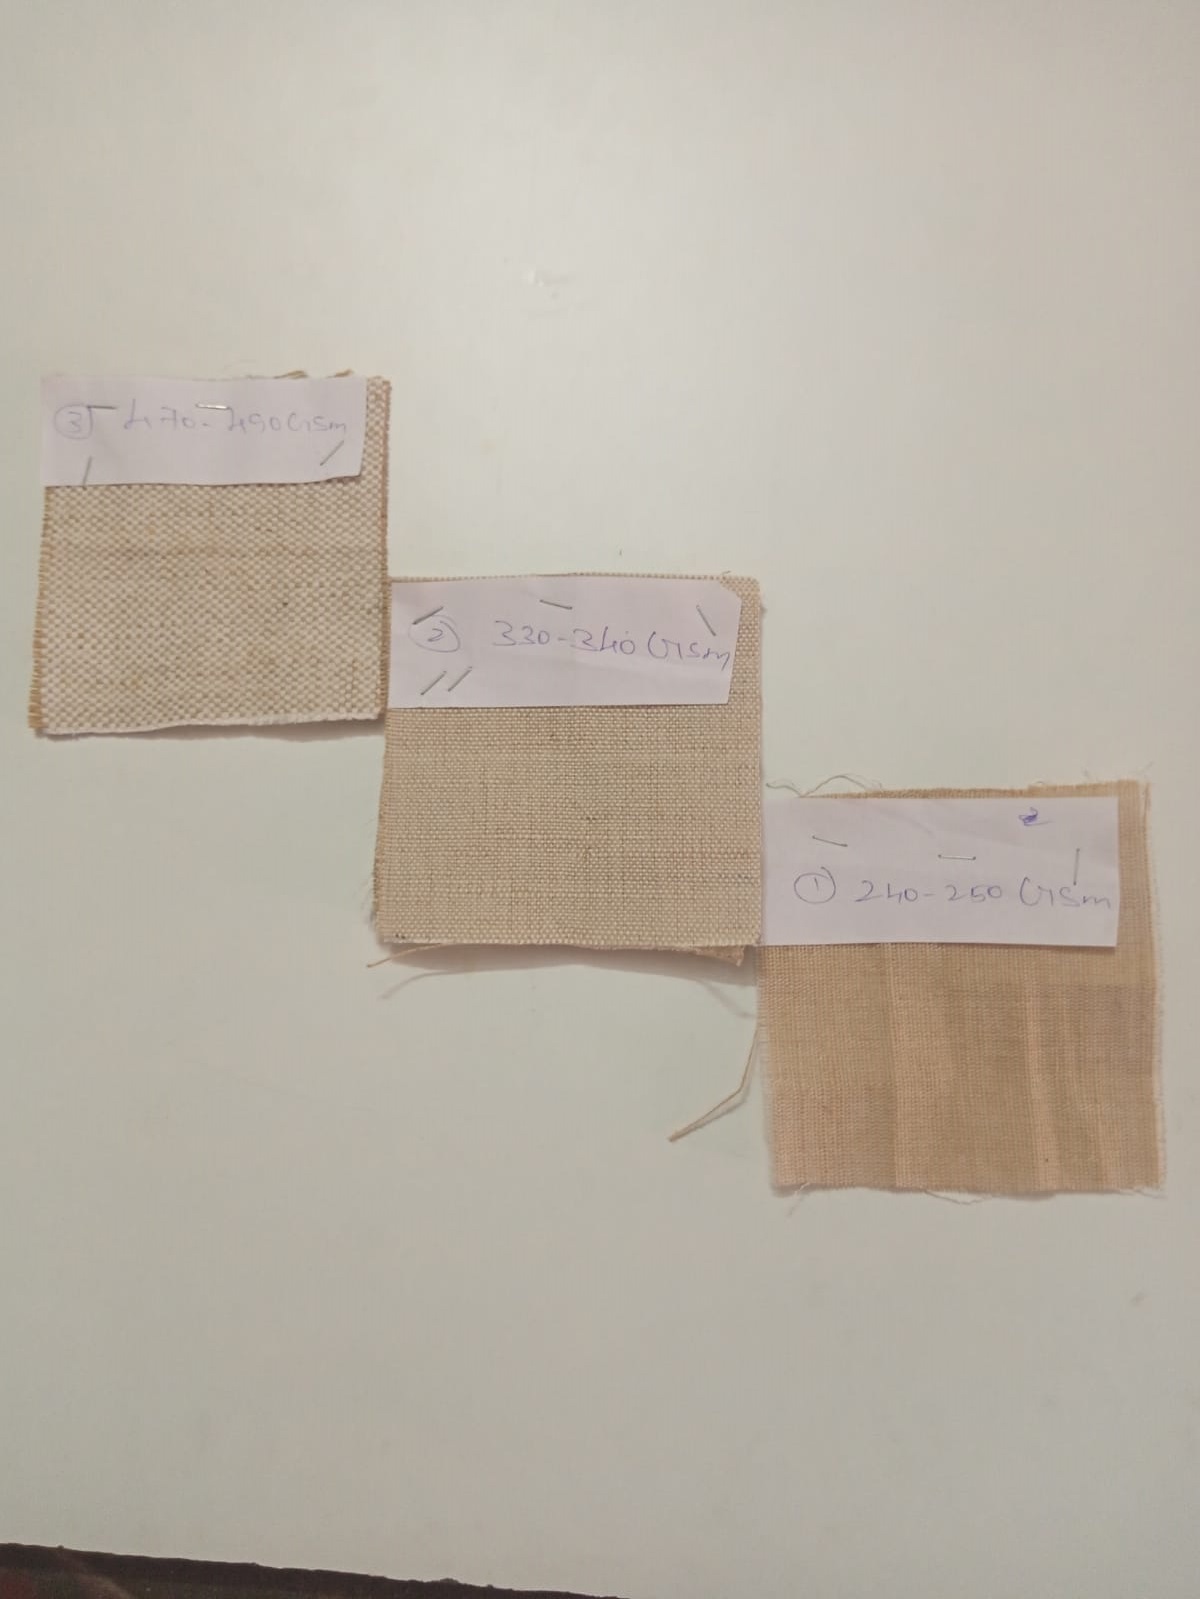 ③ 470-490 GSm
② 330-340 GSm
2
① 240-250 GSm